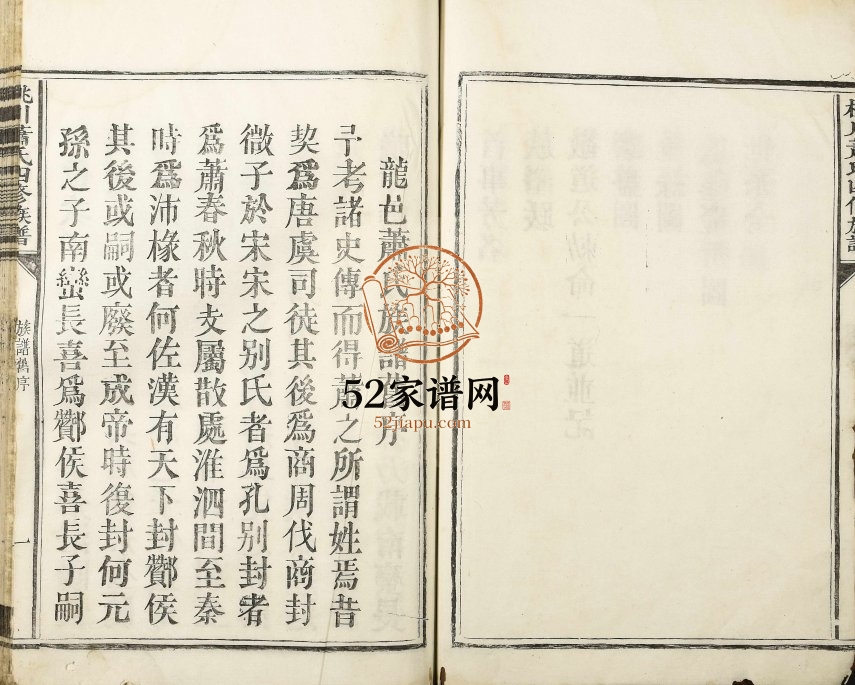 桃川蕭氏四修族譜
龍邑蕭氏族譜舊序
予考諸史傳而得蕭之所謂姓焉昔
契爲唐虞司徒其後爲商周伐商封
微子於宋宋之别氏者爲孔别封者
爲蕭春秋時支屬散處淮泗間至秦
時爲沛椽者何佐漢有天下封酇侯
其後或嗣或廢至成帝時復封何元
孫之子南巒長喜爲酇侯喜長子嗣
桃川蕭氏四修族譜
族譜舊序
一
52家谱网
52jiapu.com